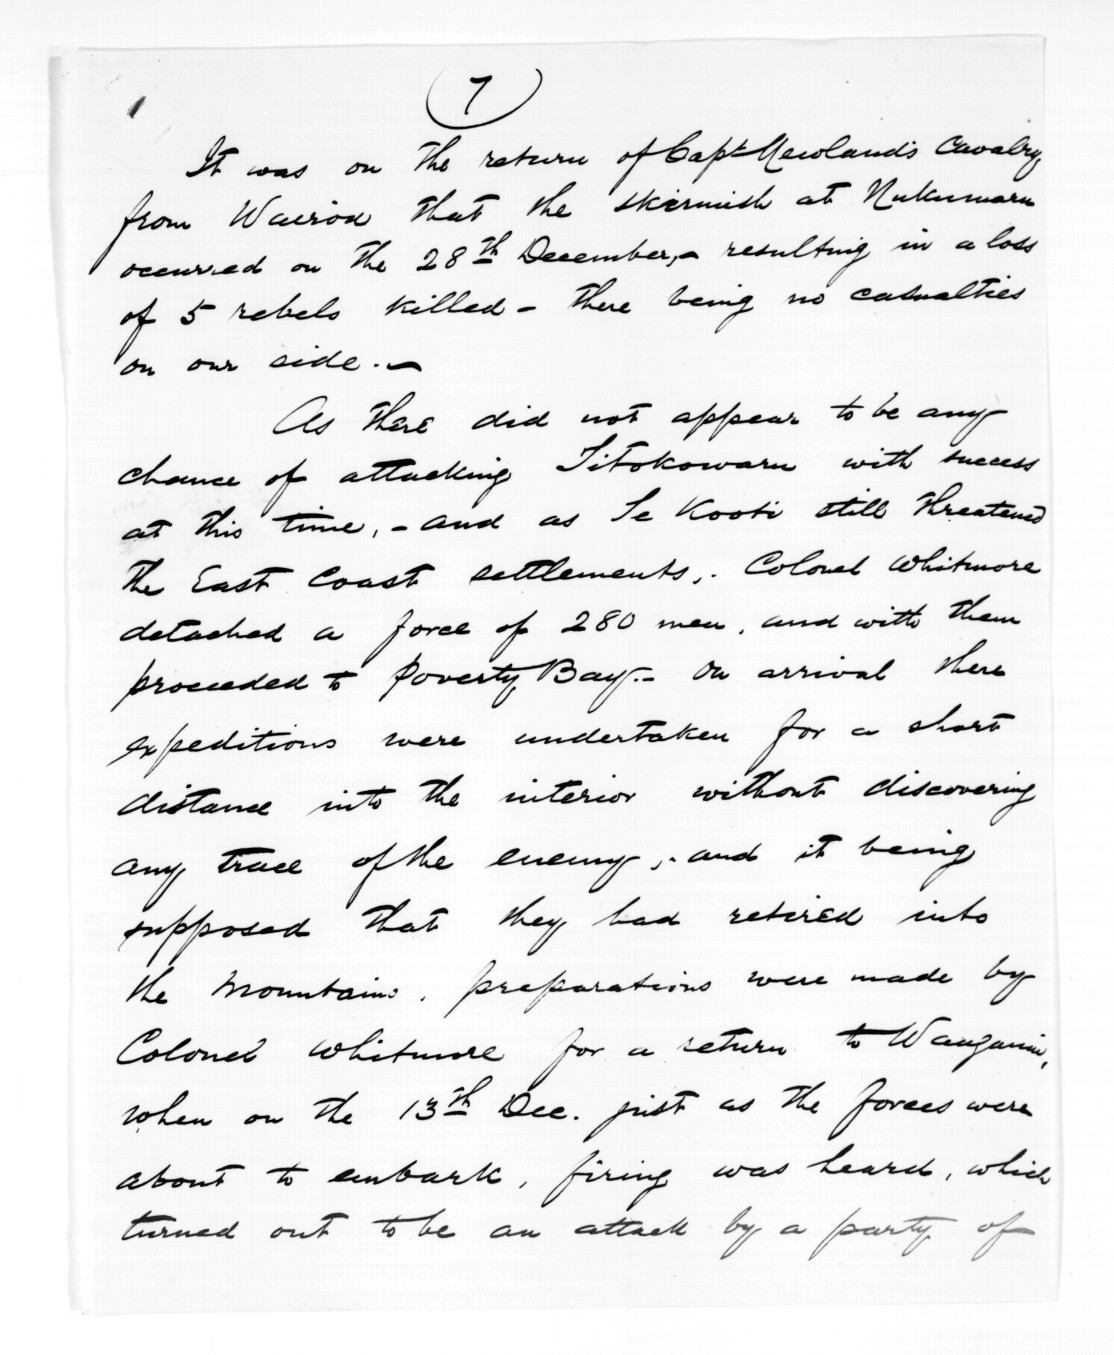 (7)
It was on the return of Capt Newland's Cavalry
from Wairoa that the skirmish at Nukumaru
occurred on the 28th December, - resulting in a loss
of 5 rebels killed - there being no casualties
on our side. -
As there did not appear to be any
chance of attacking Titokowaru with success
at this time, - and as Te Kooti still threatened
the East Coast settlements, . Colonel Whitmore
detached a force of 280 men, and with them
proceeded to Poverty Bay. - On arrival there
expeditions were undertaken for a short
distance into the interior without discovering
any trace of the enemy, . and it being
supposed that they had retired into
the Mountains, preparations were made by
Colonel Whitmore for a return to Wanganui,
when on the 13th Dec. just as the forces were
about to embark, firing was heard, which
turned out to be an attack by a party of